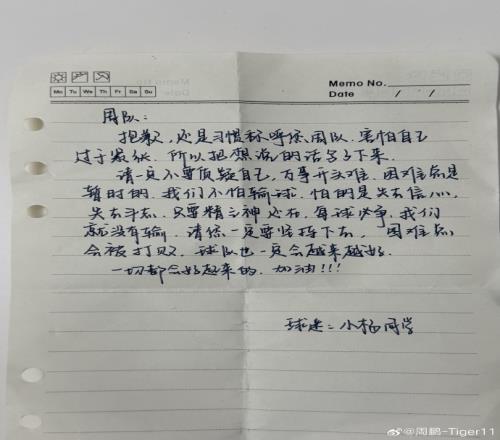 Memo No.
Mo Tu We Th Fr Sa Su
Date / /
周队:
抱歉,还是习惯称呼你周队.害怕自己
过于紧张.所以把想说的话写了下来.
请一定不要质疑自己,万事开头难.困难总是
暂时的.我们不怕输球.怕的是失去信心,
失去斗志.只要精气神还在,每球必争.我们
就没有输.请你一定要坚持下去.困难总
会被打败.球队也一定会越来越好.
一切都会好起来的.加油!!!
球迷:小杨同学
@周鹏-Tiger11